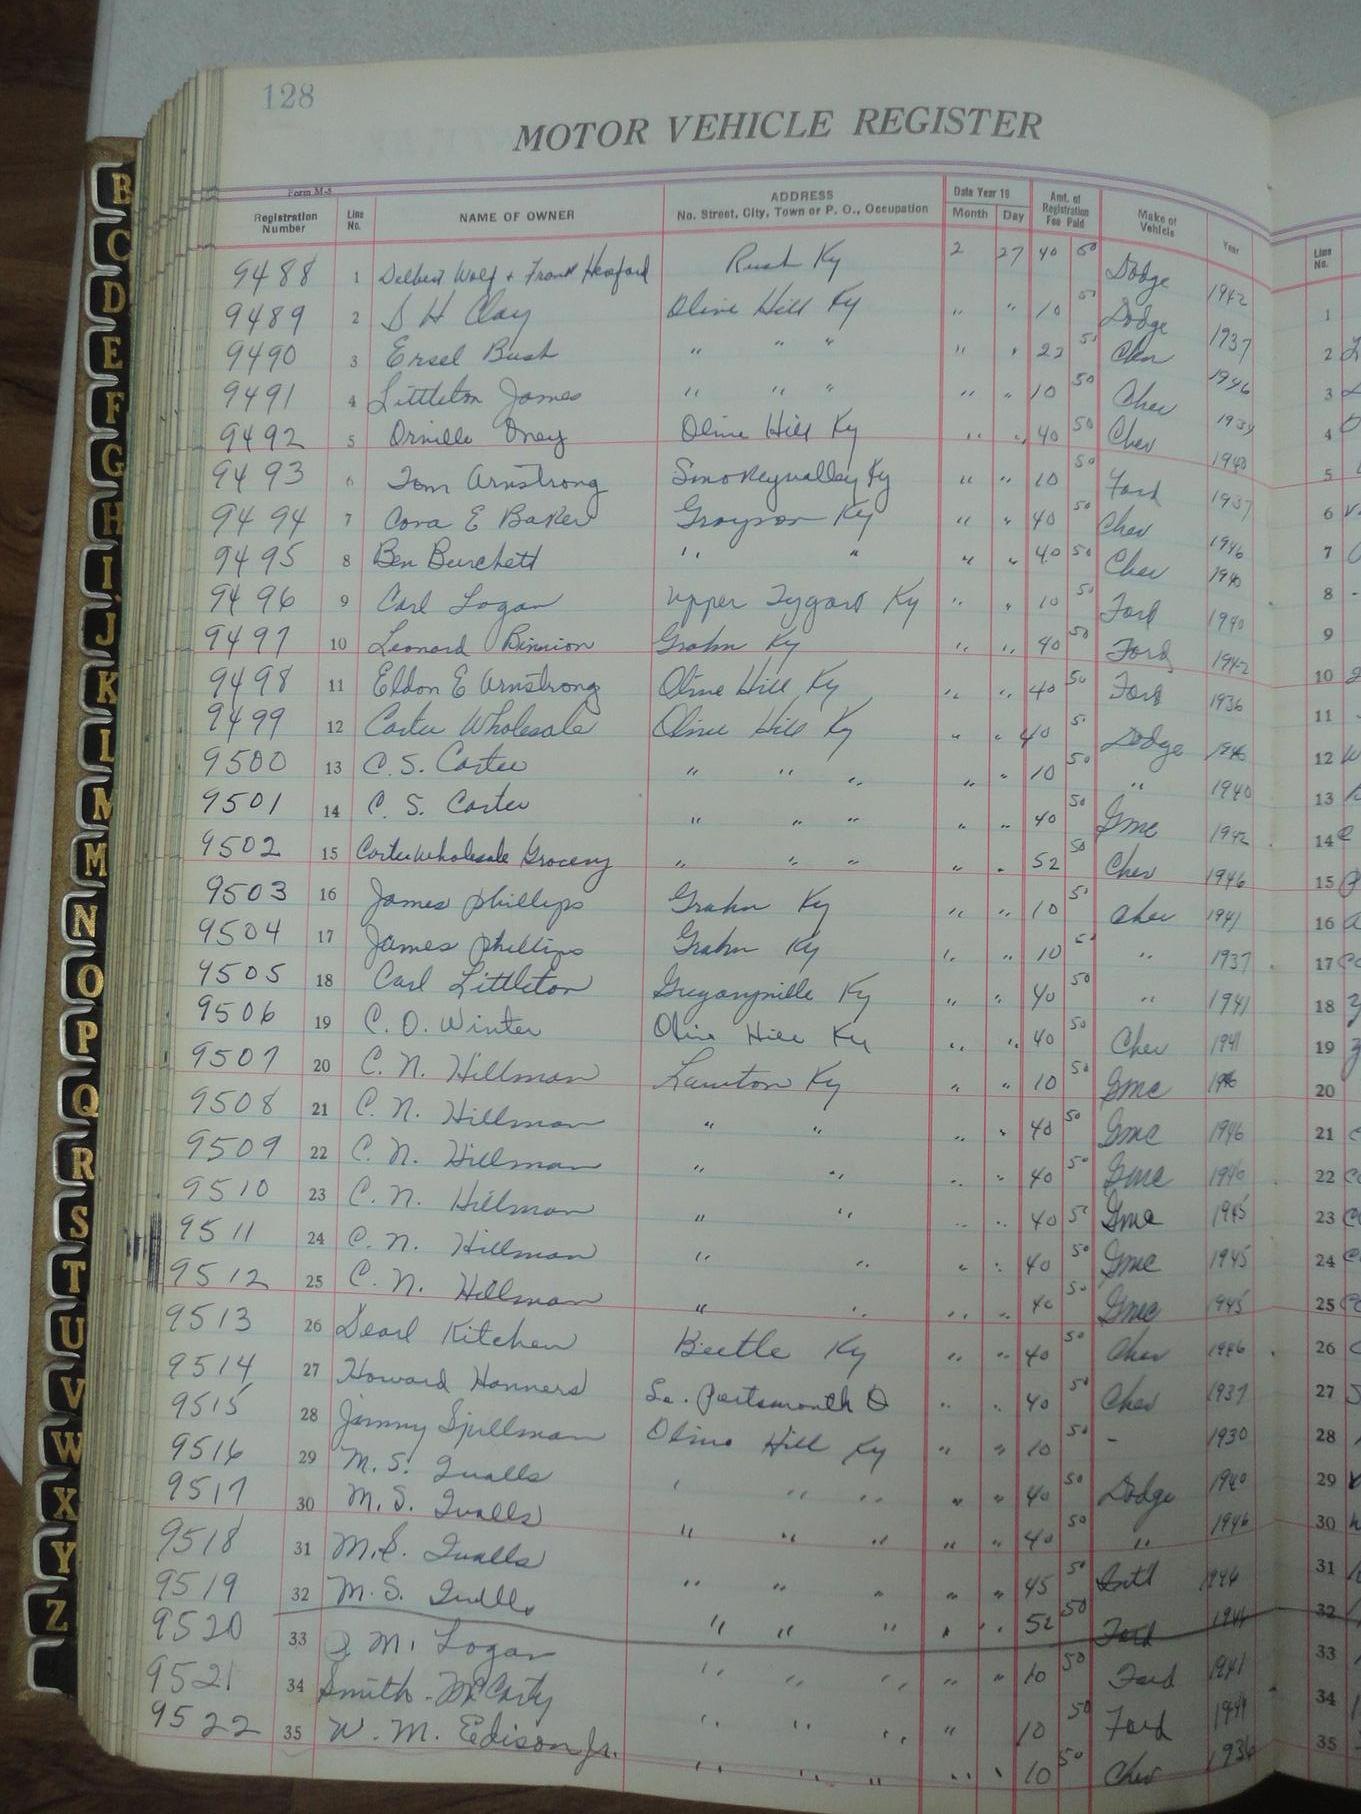 128
MOTOR VEHICLE REGISTER
Form M-5
Registration Number Line No. NAME OF OWNER ADDRESS No. Street, City, Town or P. O., Occupation Date Year 19 Month Day Amt. of Registration Fee Paid Make of Vehicle Year
9488 1 Delbert Wolf + Frank Hereford Rush Ky 2 27 40 50 Dodge 1942
9489 2 D H Clay Olive Hill Ky " " 10 50 Dodge 1937
9490 3 Ersel Bush " " " " " 22 50 Chev 1946
9491 4 Littleton James " " " " " 10 50 Chev 1939
9492 5 Orville Oney Olive Hill Ky " " 40 50 Chev 1940
9493 6 Tom Armstrong Smokeyvalley Ky " " 10 50 Ford 1937
9494 7 Cora E Baker Grayson Ky " " 40 50 Chev 1946
9495 8 Ben Burchett " " " " 40 50 Chev 1940
9496 9 Carl Logan Upper Tygart Ky " " 10 50 Ford 1940
9497 10 Leonard Binnion Grahn Ky " " 40 50 Ford 1942
9498 11 Eldon E Armstrong Olive Hill Ky " " 40 50 Ford 1936
9499 12 Carter Wholesale Olive Hill Ky " " 40 50 Dodge 1946
9500 13 C. S. Carter " " " " " 10 50 " 1940
9501 14 C. S. Carter " " " " " 40 50 Gmc 1942
9502 15 Carter Wholesale Grocery " " " " " 52 50 Chev 1946
9503 16 James Phillips Grahn Ky " " 10 50 Chev 1941
9504 17 James Phillips Grahn Ky " " 10 50 " 1937
9505 18 Carl Littleton Gregoryville Ky " " 40 50 " 1941
9506 19 C. O. Winter Olive Hill Ky " " 40 50 Chev 1941
9507 20 C. N. Hillman Lawton Ky " " 10 50 Gmc
9508 21 C. N. Hillman " " " " 40 50 Gmc 1946
9509 22 C. N. Hillman " " " " 40 50 Gmc 1940
9510 23 C. N. Hillman " " " " 40 50 Gmc 1945
9511 24 C. N. Hillman " " " " 40 50 Gmc 1945
9512 25 C. N. Hillman " " " " 40 50 Gmc 1945
9513 26 Dearl Kitchen Beetle Ky " " 40 50 Chev 1946
9514 27 Howard Conners So. Portsmouth O " " 40 50 Chev 1937
9515 28 Jimmy Spillman Olive Hill Ky " " 10 50 - 1930
9516 29 M. S. Qualls " " " " " 40 50 Dodge 1940
9517 30 M. S. Qualls " " " " " 40 50 " 1946
9518 31 M. S. Qualls " " " " " 45 50 Intl 1946
9519 32 M. S. Qualls " " " " " 52 50 Ford
9520 33 M. Logan " " " " " 10 50 Ford 1941
9521 34 Smith - McCarty " " " " 10 50 Ford 1941
9522 35 W. M. Edison Jr. " " " " " 10 50 Chev 1936
B
C
D
E
F
G
H
I
J
K
L
M
M
N
O
P
Q
R
S
T
U
V
W
X
Y
Z
Line No.
1
2
3
4
5
6
7
8
9
10
11
12
13
14
15
16
17
18
19
20
21
22
23
24
25
26
27
28
29
30
31
32
33
34
35